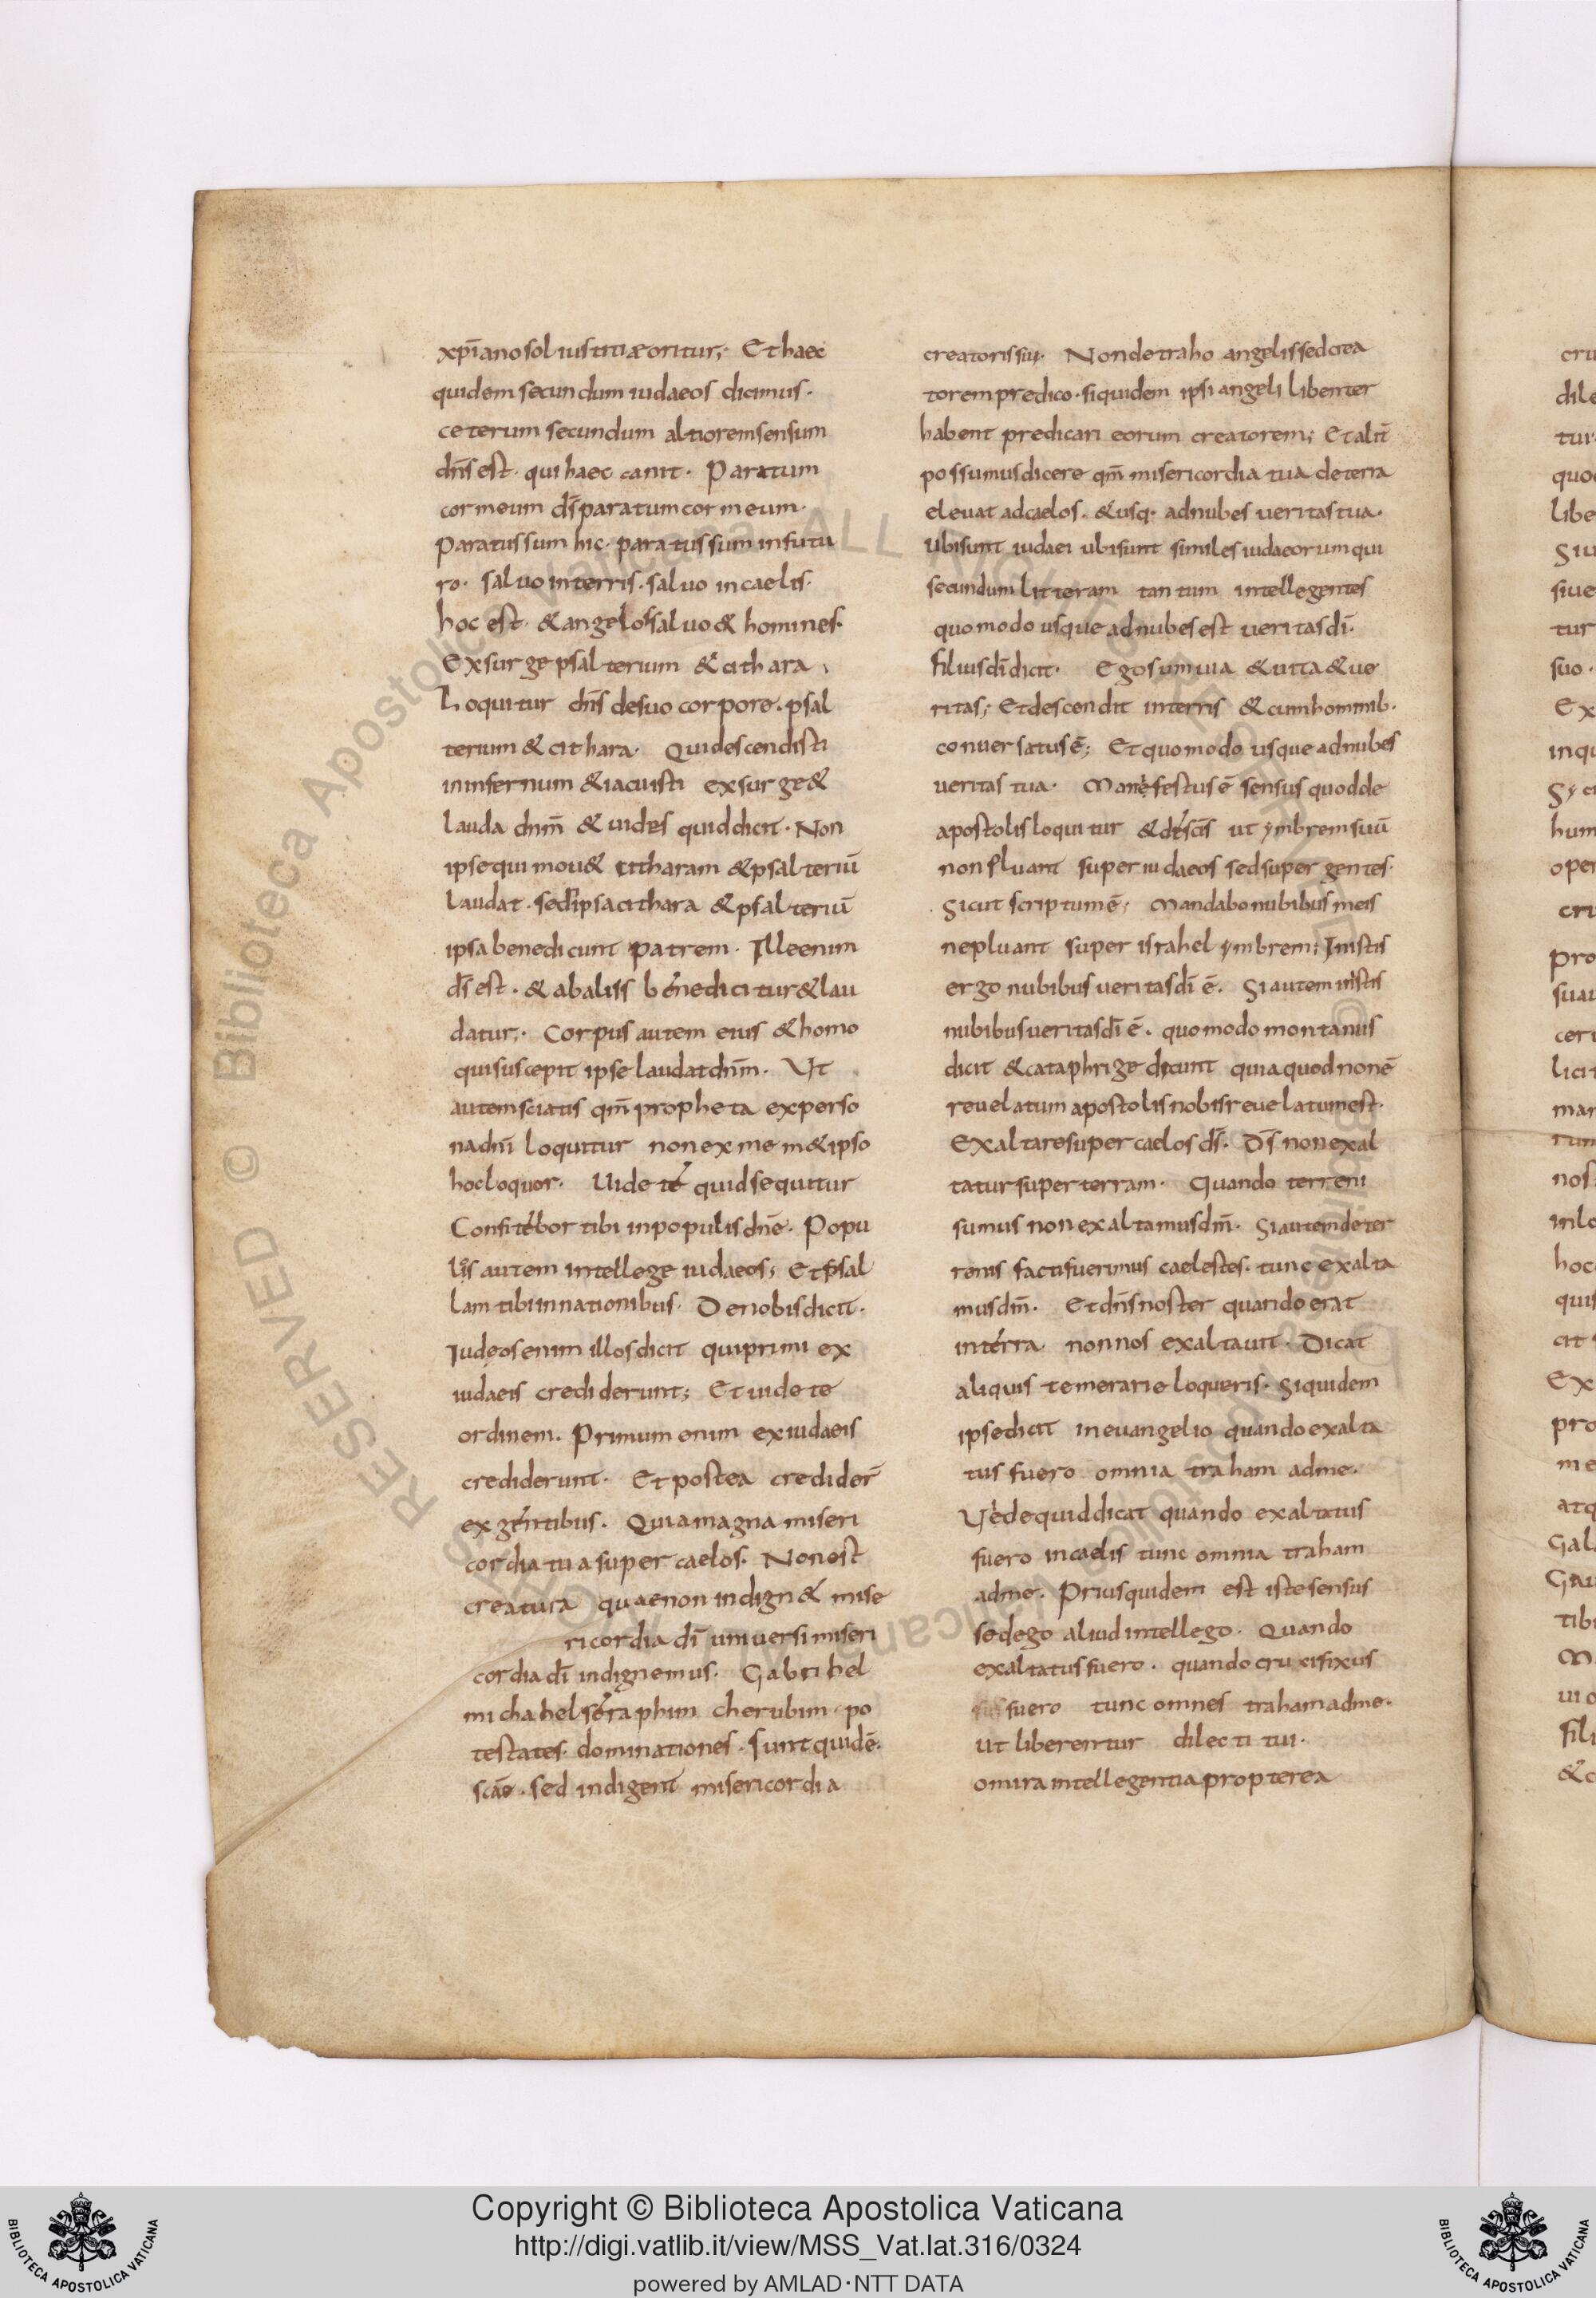 xpī ano sol iustitiæ oritur;· Et haec
quidem secundum iudaeos dicimus·
ceterum secundum altiorem sensum
dn̄s est· qui haec canit· Paratum
cor meum d̄s paratum cor meum·
Paratus sum hic· paratus sum in futu
ro· saluo in terris· saluo in caelis·
hoc est· & angelos saluo & homines·
Exsurge psalterium & cithara ·
Loquitur dn̄s de suo corpore· psal
terium & cithara· Qui descendisti
in infernum & iacuisti exsurge &
lauda dnm̄ & uides quid dicit· Non
ipse qui mou& citharam & psalteriū
laudat· sed ipsa cithara & psalteriū
ipsa benedicunt patrem· Ille enim
d̄s est· & ab aliis benedicitur & lau
datur;· Corpus autem eius & homo
qui suscepit ipse laudat dnm̄· Ut
autem sciatis qm̄ propheta ex perso
na dnī loquitur non ex me m& ipso
hoc loquor· Uidete quid sequitur
Confitebor tibi in populis dnē· Popu
los autem intellege iudaeos; Et psal
lam tibi in nationibus· De nobis dicit·
Iudęos enim illos dicit qui primi ex
iudaeis crediderunt; Et uidete
ordinem· Primum enim ex iudaeis
crediderunt· Et postea credider̄
ex gentibus· Quia magna miseri
cordia tua super caelos· Non est
creatura quae non indign& mise
ricordia dī uniuersi miseri
cordia dī indignemus· Gabrihel
michahel seraphim cherubim· po
testates· dominationes· sunt quidē·
scāe· sed indigent misericordia
creatoris sui· Non detraho angelis sed crea
torem predico· siquidem ipsi angeli libenter
habent predicari eorum creatorem; Et alit̄
possumus dicere qm̄ misericordia tua de terra
eleuat ad caelos· & usq· ad nubes ueritas tua·
Ubi sunt iudaei ubi sunt similes iudaeorum qui
secundum litteram tantum intellegentes
quomodo usque ad nubes est ueritas dī·
filius dī dicit· Ego sum uia & uita & ue
ritas; Et descendit in terris & cum hominib·
conuersatus ē; Et quomodo usque ad nubes
ueritas tua· Manifestus ē sensus quod de
apostolis loquitur & de scis ut ymbrem suū
non pluant super iudaeos sed super gentes·
Sicut scriptum ē; Mandabo nubibus meis
ne pluant super israhel ymbrem; In istis
ergo nubibus ueritas dī ē· Si autem in istis
nubibus ueritas dī ē· quomodo montanus
dicit & cataphrige dicunt quia quod non ē
reuelatum apostolis nobis reuelatum est·
Exaltare super caelos d̄s· D̄s non exal
tatur super terram· Quando terreni
sumus non exaltamus dm̄· Si autem de ter
renis facti fuerimus caelestes· tunc exalta
mus dm̄· Et dn̄s noster quando erat
in terra non nos exaltauit· Dicat
aliquis temerarie loqueris· Siquidem
ipse dicit in euangelio quando exalta
tus fuero omnia traham ad me·
Uide quid dicat quando exaltatus
fuero in caelis tunc omnia traham
ad me· Prius quidem est iste sensus
sed ego aliud intellego· Quando
exaltatus fuero· quando crucifixus
fuero tunc omnes traham ad me·
ut liberentur dilecti tui·
O mira intellegentia propterea
Copyright © Biblioteca Apostolica Vaticana
http://digi.vatlib.it/view/MSS_Vat.lat.316/0324
powered by AMLAD·NTT DATA